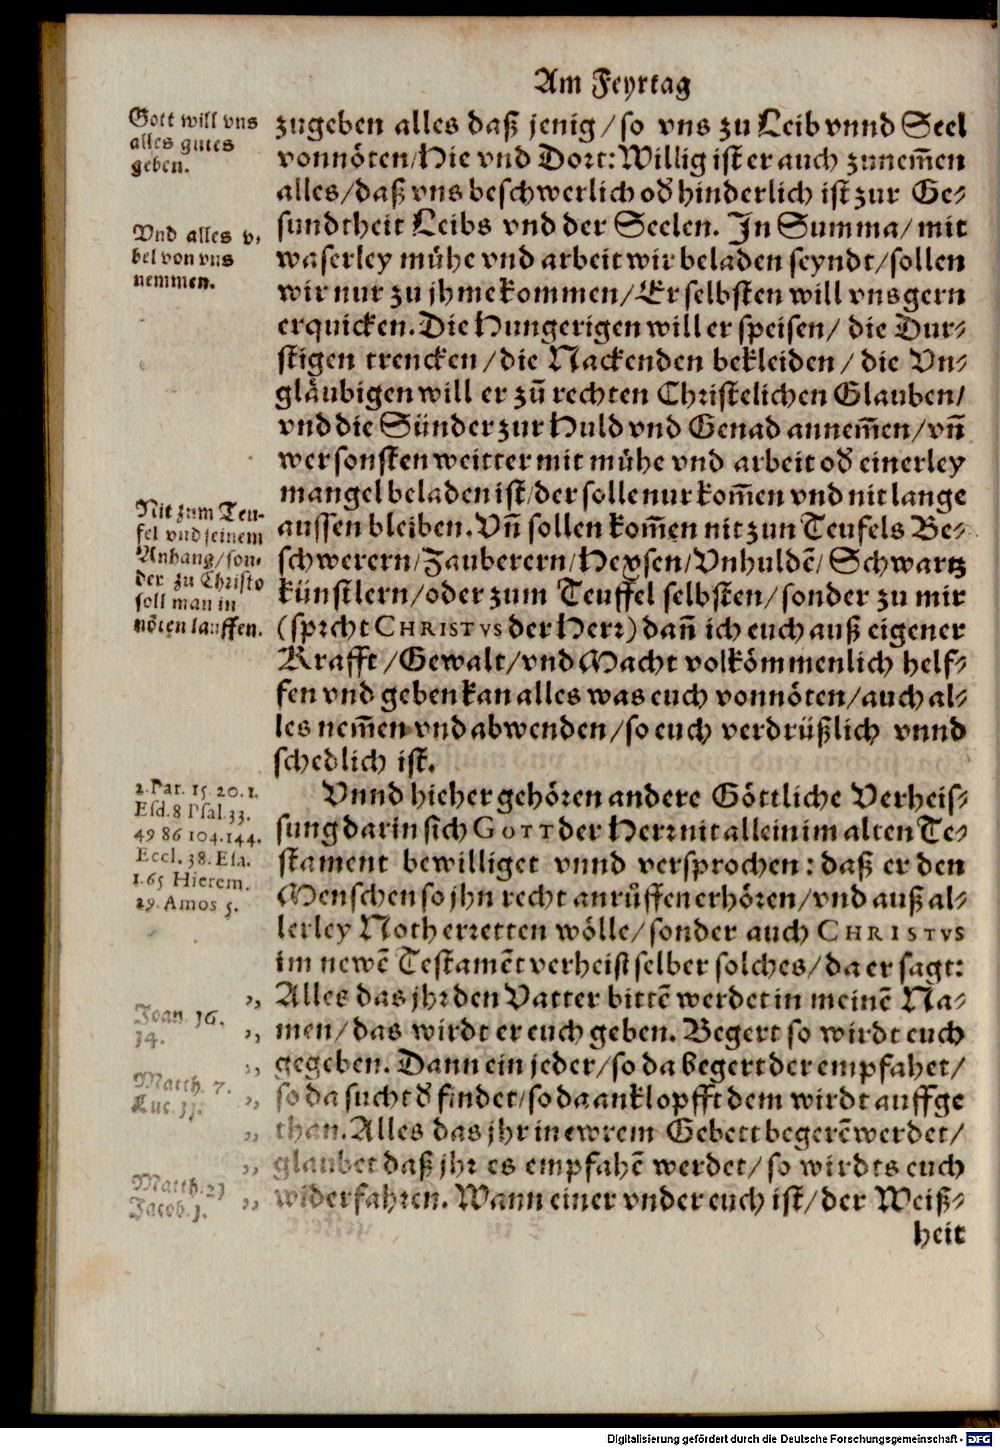 Am Feyrtag
Gott will vns
alles gutes
geben.
zugeben alles daß jenig/so vns zu Leib vnnd Seel
vonnöten/Hie vnd Dort: Willig ist er auch zunem̃en
alles/daß vns beschwerlich od̕ hinderlich ist zur Ge-
Vnd alles v-
bel von vns
nemmen.
sundtheit Leibs vnd der Seelen. In Summa/mit
waserley mühe vnd arbeit wir beladen seyndt/sollen
wir nur zu jhme kommen/Er selbsten will vns gern
erquicken. Die Hungerigen will er speisen/die Dur-
stigen trencken/die Nackenden bekleiden/die Vn-
gläubigen will er zũ rechten Christelichen Glauben/
vnd die Sünder zur Huld vnd Genad annem̃en/vñ
wer sonsten weitter mit mühe vnd arbeit od̕ einerley
mangel beladen ist/der solle nur kom̃en vnd nit lange
Nit zum Teu-
fel vnd seinem
Anhang/son-
der zu Christo
soll man in
nöten lauffen.
aussen bleiben. Vñ sollen kom̃en nit zun Teufels Be-
schwerern/Zauberern/Hexsen/Vnhuldẽ/Schwartz
künstlern/oder zum Teuffel selbsten/sonder zu mir
(spricht CHRISTVS der Herr) dañ ich euch auß eigener
Krafft/Gewalt/vnd Macht volkömmenlich helf-
fen vnd geben kan alles was euch vonnöten/auch al-
les nem̃en vnd abwenden/so euch verdrüßlich vnnd
schedlich ist.
2. Par. 15 20. 1.
Esd. 8 Psal. 33.
49 86 104. 144.
Eccl. 38. Esa.
1. 65 Hierem.
29. Amos 5.
Vnnd hieher gehören andere Göttliche Verheis-
sung darin sich GOTT der Herr nit allein im alten Te-
stament bewilliget vnnd versprochen: daß er den
Menschen so jhn recht anrüffen erhören/vnd auß al-
lerley Noth erretten wölle/sonder auch CHRISTVS
im newẽ Testamẽt verheist selber solches/da er sagt:
Joan. 16.
14.
„ Alles das jhr den Vatter bittẽ werdet in meinẽ Na-
„ men/das wirdt er euch geben. Begert so wirdt euch
„ gegeben. Dann ein jeder/so da begert der empfahet/
Matth. 7.
Luc. 11.
„ so da sucht d̕ findet/so da anklopfft dem wirdt auffge
„ than. Alles das jhr in ewrem Gebett begerẽ werdet/
„ glaubet daß jhr es empfahẽ werdet/so wirdts euch
Matth. 21
Jacob. 1.
„ widerfahren. Wann einer vnder euch ist/der Weiß-
heit
Digitalisierung gefördert durch die Deutsche Forschungsgemeinschaft - DFG